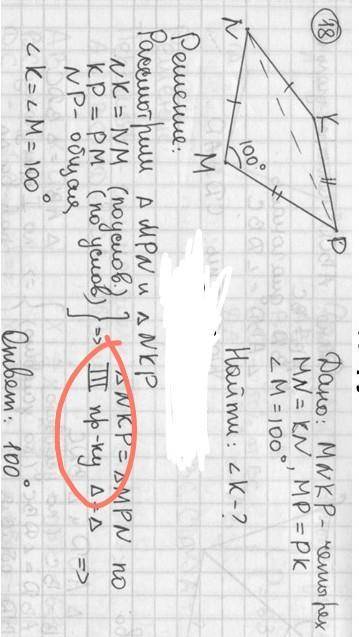 18
N
K
P
M
100°
Дано: MNKP - четырех
MN = KN, MP = PK
∠M = 100°
Найти: ∠K - ?
Решение:
Рассмотрим Δ MPN и Δ NKP
NK = NM (по услов.)
KP = PM (по услов) } => Δ NKP = Δ MPN по
NP - общая III пр-ку Δ = Δ =>
∠K = ∠M = 100°
Ответ: 100°